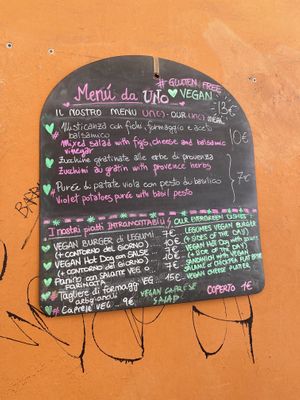 # GLUTEN FREE
Menú da UNO ♥ VEGAN
-13€
IL NOSTRO MENU UNO - OUR UNO MENU
♥ Misticanza con fichi, formaggio e aceto
balsamico
♥ Mixed salad with figs, cheese and balsamic
vinegar
10€
♥ Zucchine gratinate alle erbe di provenza
Zucchini au gratin with provence herbs
♥ Purée di patate viola con pesto di basilico
Violet potatoes puree with basil pesto
7€
I nostri piatti INTRAMONTABILI / OUR EVERGREEN DISHES
VEGAN BURGER di LEGUMI
(+ CONTORNO del GIORNO)
7€
LEGUMES VEGAN BURGER
(+ SIDES of THE DAY)
VEGAN Hot Dog con SALSE
(+ CONTORNO del GIORNO)
VEGAN Hot Dog with sauces
(+ SIDE of THE DAY)
Panino con SALUME VEG o
FARINATA
SANDWICH with VEGAN
SALUMI or CHICKPEA FLAT
♥ Tagliere di formaggi VEG
artigianali
VEGAN CHEESE PLATTER
# CAPRESE VEG ... 9€
VEGAN CAPRESE
SALAD
COPERTO 1€